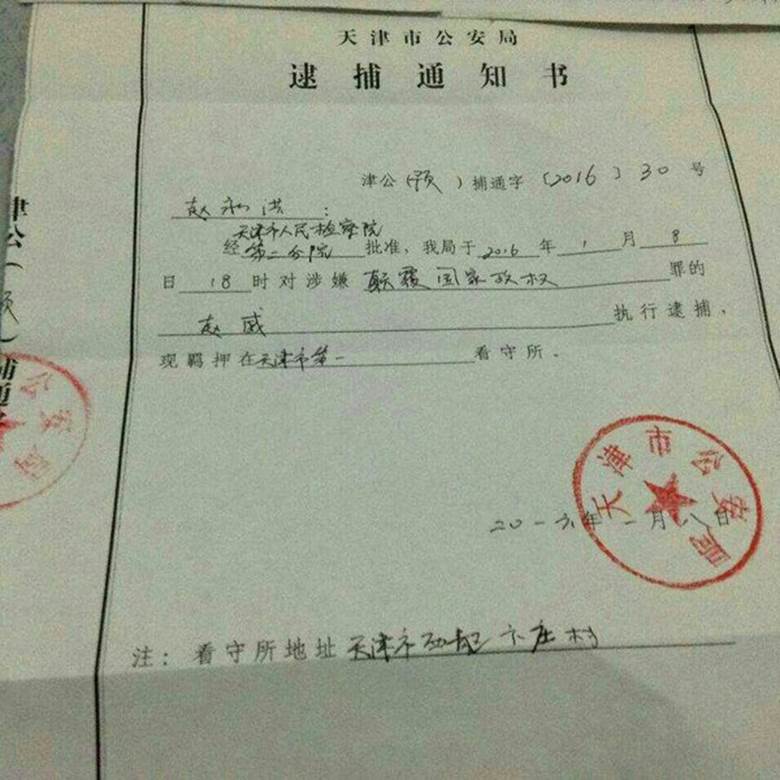 天津市公安局
逮捕通知书
津公(预)捕通字〔2016〕30号
赵永洪:
天津市人民检察院
经第二分院批准,我局于2016年1月8
日18时对涉嫌颠覆国家政权罪的
赵威执行逮捕,
现羁押在天津市第一看守所。
二〇一六年一月八日
天津市公安局
注:看守所地址天津市西青区卞庄村
津公(预)捕通字
公安局